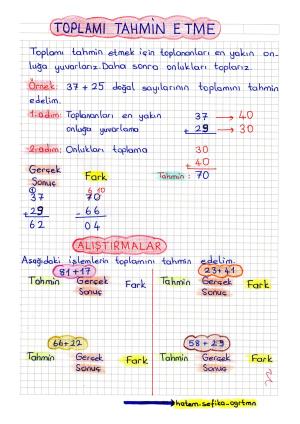 TOPLAMI TAHMİN ETME
Toplamı tahmin etmek için toplananları en yakın on-
luğa yuvarlarız. Daha sonra onlukları toplarız.
Örnek: 37 + 25 doğal sayılarının toplamını tahmin
edelim.
1. adım: Toplananları en yakın 37 → 40
onluğa yuvarlama + 29 → 30
2. adım: Onlukları toplama 30
+ 40
Tahmin: 70
Gerçek Sonuç
1
37
+ 29
62
Fark
6 10
70
- 66
04
ALIŞTIRMALAR
Aşağıdaki işlemlerin toplamını tahmin edelim.
81+17 23+41
Tahmin Gerçek Sonuç Fark Tahmin Gerçek Sonuç Fark
66+22 58+29
Tahmin Gerçek Sonuç Fark Tahmin Gerçek Sonuç Fark
hatem.sefika_ogrtmn